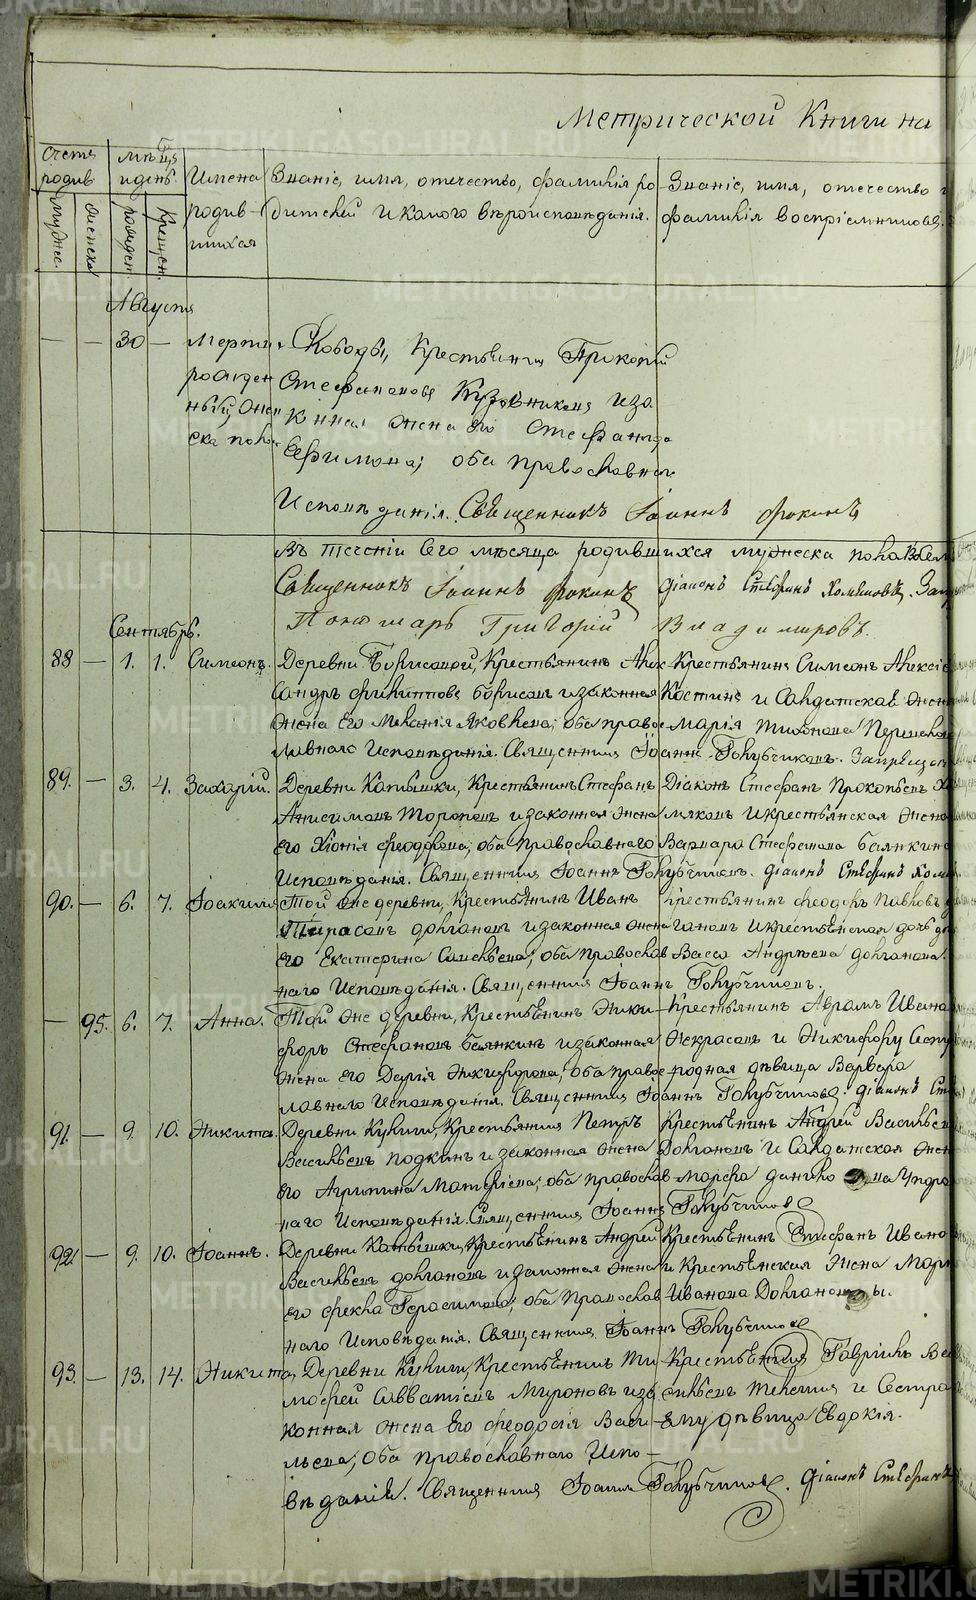 Метрической Книги на
Счетъ родив.
муже.
женска
мѣсяцъ и день.
рожден.
Крещен.
Имена родив- шихся
Званіе, имя, отечество, фамилія ро-
дителей и какого вѣроисповѣданія.
Званіе, имя, отечество и
фамилія воспріемниковъ.
Августа
— — 30 — Мертво
рожден
ный, жен
ска пола
Слободы, Крестьянинъ Прокопій
Стефановъ Кузовниковъ и за
конная жена его Стефанида
Ефимова; оба православнаго
Исповѣданія. Священникъ Іоаннъ Фокинъ
Въ теченіи Сего мѣсяца родившихся мужеска пола
Священникъ Іоаннъ Фокинъ Діаконъ Стефанъ Холмаковъ.
Пономарь Григорій Владимировъ.
Сентябрь.
88 — 1. 1. Симеонъ.
Деревни Борисовой, Крестьянинъ Алек-
сандръ Филипповъ Борисовъ и законная
жена Его Меланія Яковлева; оба право-
славнаго Исповѣданія. Священникъ Іоаннъ Голубчиковъ.
Крестьянинъ Симеонъ Алексіе
Костинъ и Салдатская жен
Марія Тихонова
89. — 3. 4. Захарій.
Деревни Катышки, Крестьянинъ Стефанъ
Анисимовъ Тороповъ и законная жена
его Хіонія Феодорова; оба православнаго
Исповѣданія. Священникъ Іоаннъ Голубчиковъ. Діаконъ Стефанъ Холм
Діаконъ Стефанъ Прокопьевъ Хо
лмаковъ и крестьянская жена
Варвара Стефанова Балкина
90. — 6. 7. Іоакимъ
Той же деревни, Крестьянинъ Иванъ
Тарасовъ Долгановъ и законная жена
его Екатерина Савельева; оба православ
наго Исповѣданія. Священникъ Іоаннъ Голубчиковъ.
Крестьянинъ Феодоръ Павловъ Д
гановъ и крестьянская дочь
Васса Андрѣева Долганова.
— 95. 6. 7. Анна.
Той же деревни, Крестьянинъ Ники-
форъ Стефановъ Балкинъ и законная
жена Его Дарія Никифорова; Оба право-
славнаго Исповѣданія. Священникъ Іоаннъ Голубчиковъ. Діаконъ Ст
Крестьянинъ Аврамъ Ивано
Некрасовъ и Никифору Сест
родная дѣвица Варвара
91. — 9. 10. Никита.
Деревни Кукиш, Крестьянинъ Петръ
Васильевъ Подкинъ и законная жена
его Агрипина Матфіева; оба православ
наго Исповѣданія. Священникъ Іоаннъ Голубчиковъ
Крестьянинъ Андрей Васильев
Долгановъ и Салдатская жен
Марфа Данило ва
92. — 9. 10. Іоаннъ.
Деревни Катышки, Крестьянинъ Андрей
Васильевъ Долгановъ и законная жена
его Фекла Герасимова; оба православ-
наго Исповѣданія. Священникъ Іоаннъ Голубчиковъ
Крестьянинъ Стефанъ Ивано
и Крестьянская Жена Мар
Иванова Долгановы.
93. — 13. 14. Никита,
Деревни Кукиш, Крестьянинъ Ти-
мофей Савватіевъ Мироновъ и за
конная жена Его Феодосія Васи-
льева; Оба православнаго Испо-
вѣданія. Священникъ Іоаннъ Голубчиковъ. Діаконъ Стефанъ
Крестьянинъ Гавріилъ Ва
сильевъ и Сестра
ему дѣвица Евдокія.